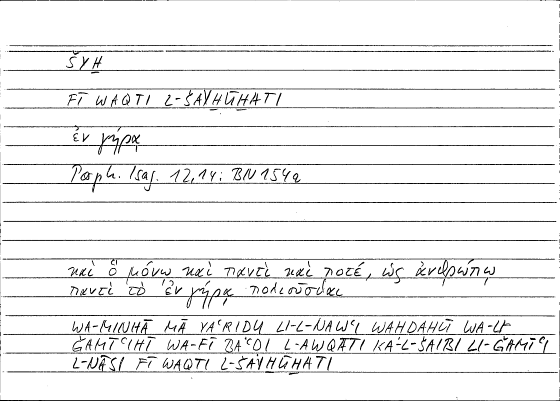 ŠYH̲
FĪ WAQTI L-ŠAYH̲ŪH̲ATI
ἐν γήρᾳ
Porph. Isag. 12,14: BN 154a
καὶ ὃ μόνῳ καὶ παντὶ καὶ ποτέ, ὡς ἀνθρώπῳ
παντὶ τὸ ἐν γήρᾳ πολιοῦσθαι
WA-MINHĀ MĀ YAʿRIḌU LI-L-NAWʿI WAḤDAHŪ WA-LI-
ǦAMĪʿIHĪ WA-FĪ BAʿḌI L-AWQĀTI KA-L-ŠAIBI LI-ǦAMĪʿI
L-NĀSI FĪ WAQTI L-ŠAYH̲ŪH̲ATI